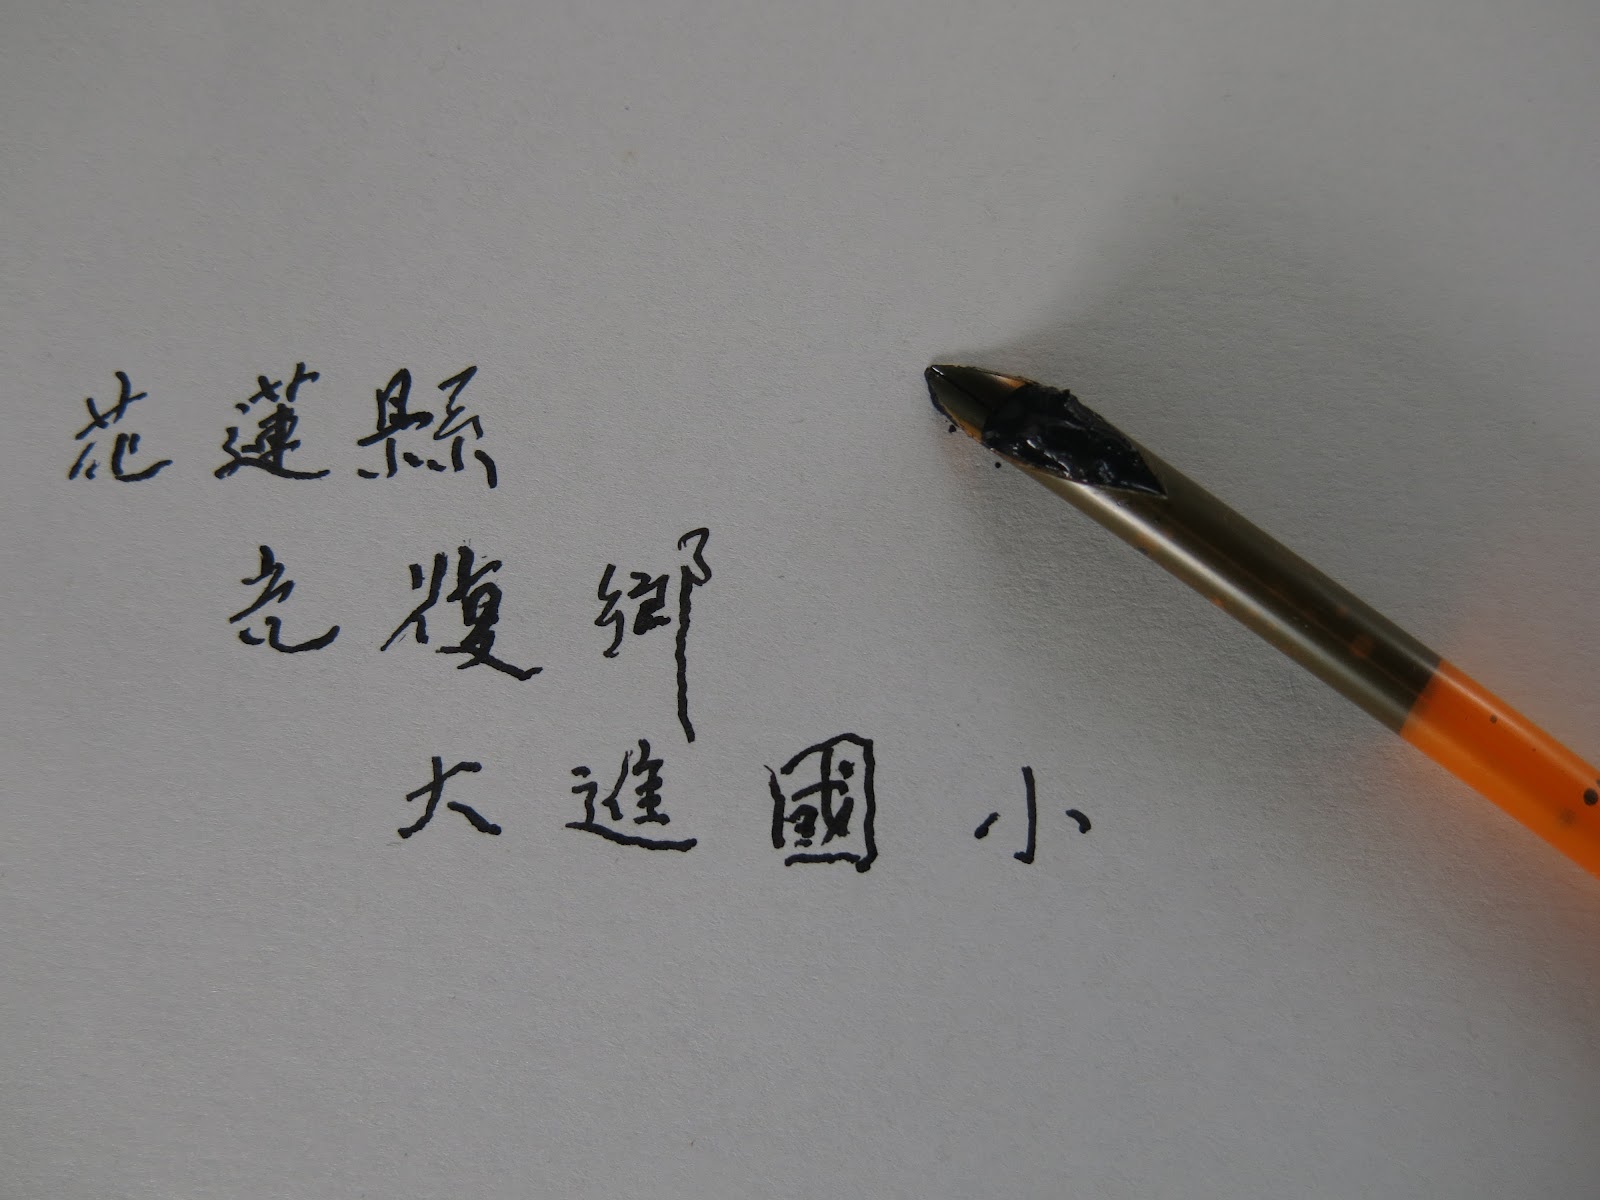 花蓮縣
光復鄉
大進國小